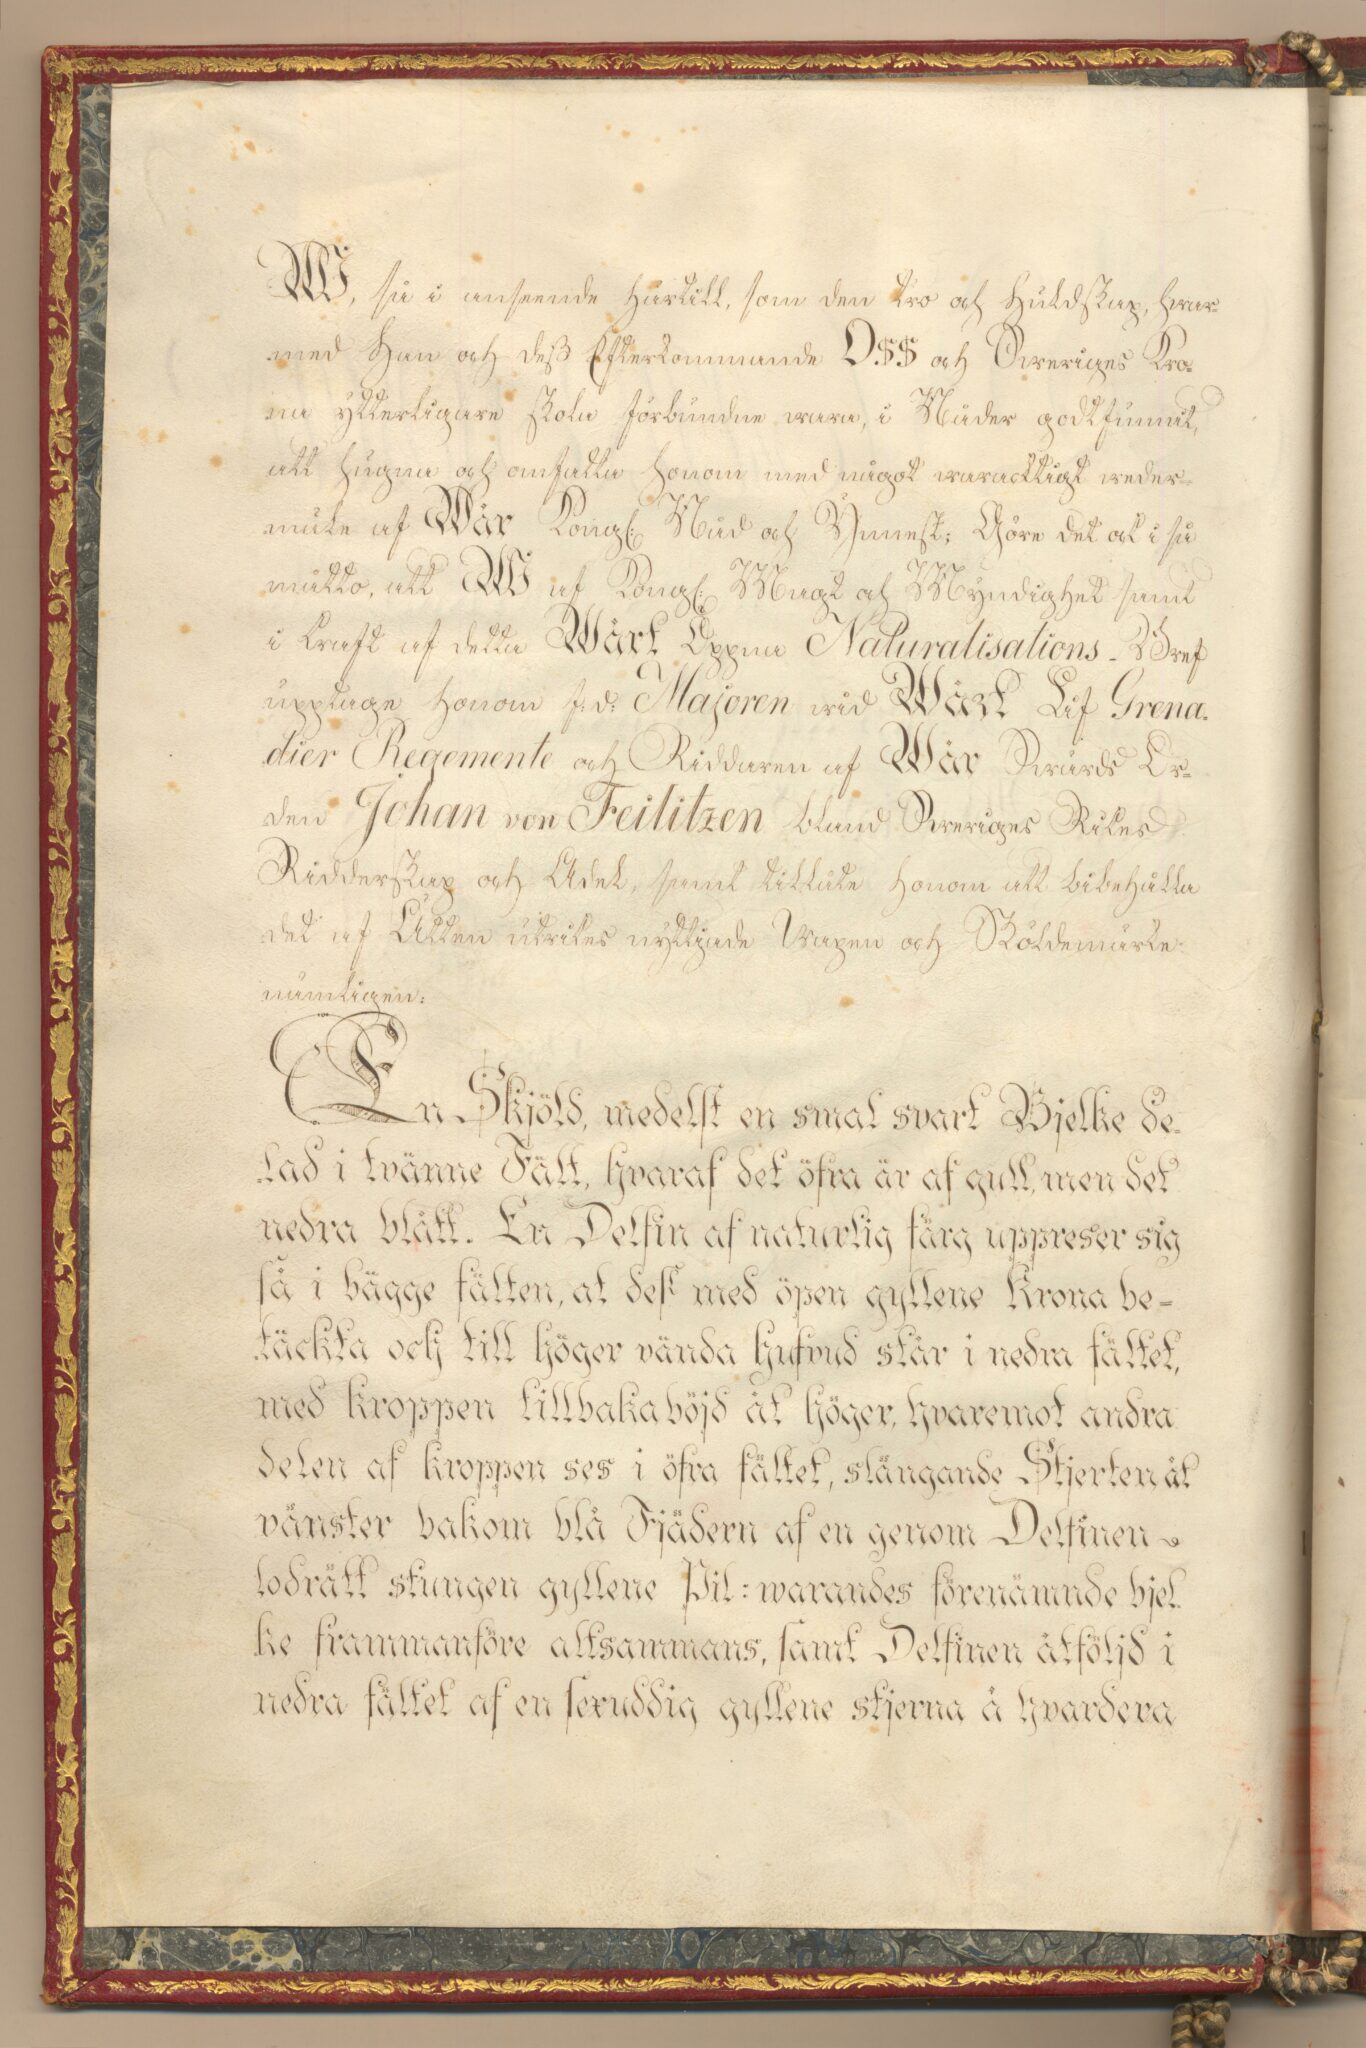 Wi, så i anseende härtill, som den tro och Huldskap, hwar-
med Han och deß Efterkommande OSS och Sweriges Kro-
na ytterligare skola förbundne wara, i Nåder godtfunnit,
att hugna och anfatta honom med något waracktigt weder-
mäle af Wår Kongl: Nåd och Ynnest; Göre det ock i så
måtto, att Wi af Kongl: Magt och Myndighet samt
i kraft af detta Wårt Öppna Naturalisations-Bref
upptage honom f.d. Majoren wid Wårt Lif Grena-
dier Regemente och Riddaren af Wår Swärds Or-
den Johan von Feilitzen bland Sweriges Rikes
Ridderskap och Adel, samt tillåte honom att bibehålla
det af Ätten utrikes nyttjade Wapen och Sköldemärke
nämligen:
En Skjöld, medelst en smal svart Bjelke de-
lad i tvänne Fält, hvaraf det öfra är af gull, men det
nedra blått. En Delfin af naturlig färg uppreser sig
så i bägge fälten, at des med öpen gyllene Krona be-
täckta och till höger vända hufvud står i nedra fältet,
med kroppen tillbakaböjd åt höger, hvaremot andra
delen af kroppen ses i öfra fältet, slängande Stjerten åt
vänster bakom blå Fjädern af en genom Delfinen
lodrätt stungen gyllene Pil: warandes förenämnde bjel-
ke frammanföre altsammans, samt Delfinen åtföljd i
nedra fältet af en sexuddig gyllene stjerna å hvardera